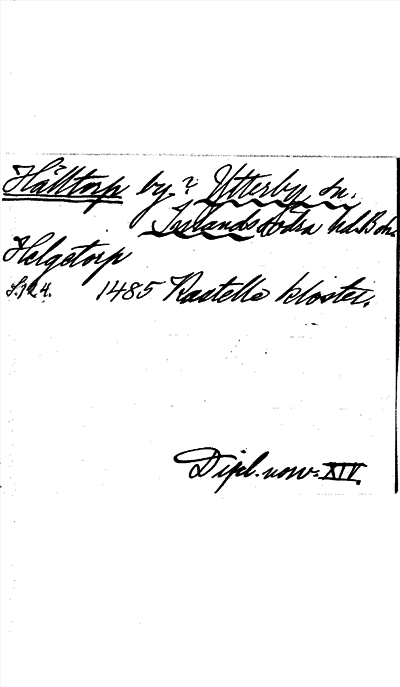 Hålltorp by.? Ytterby sn.
Inlands Södra hd. Boh.
Helgetorp
S. 124. 1485 Kastella kloster.
Dipl. norv. XIV.